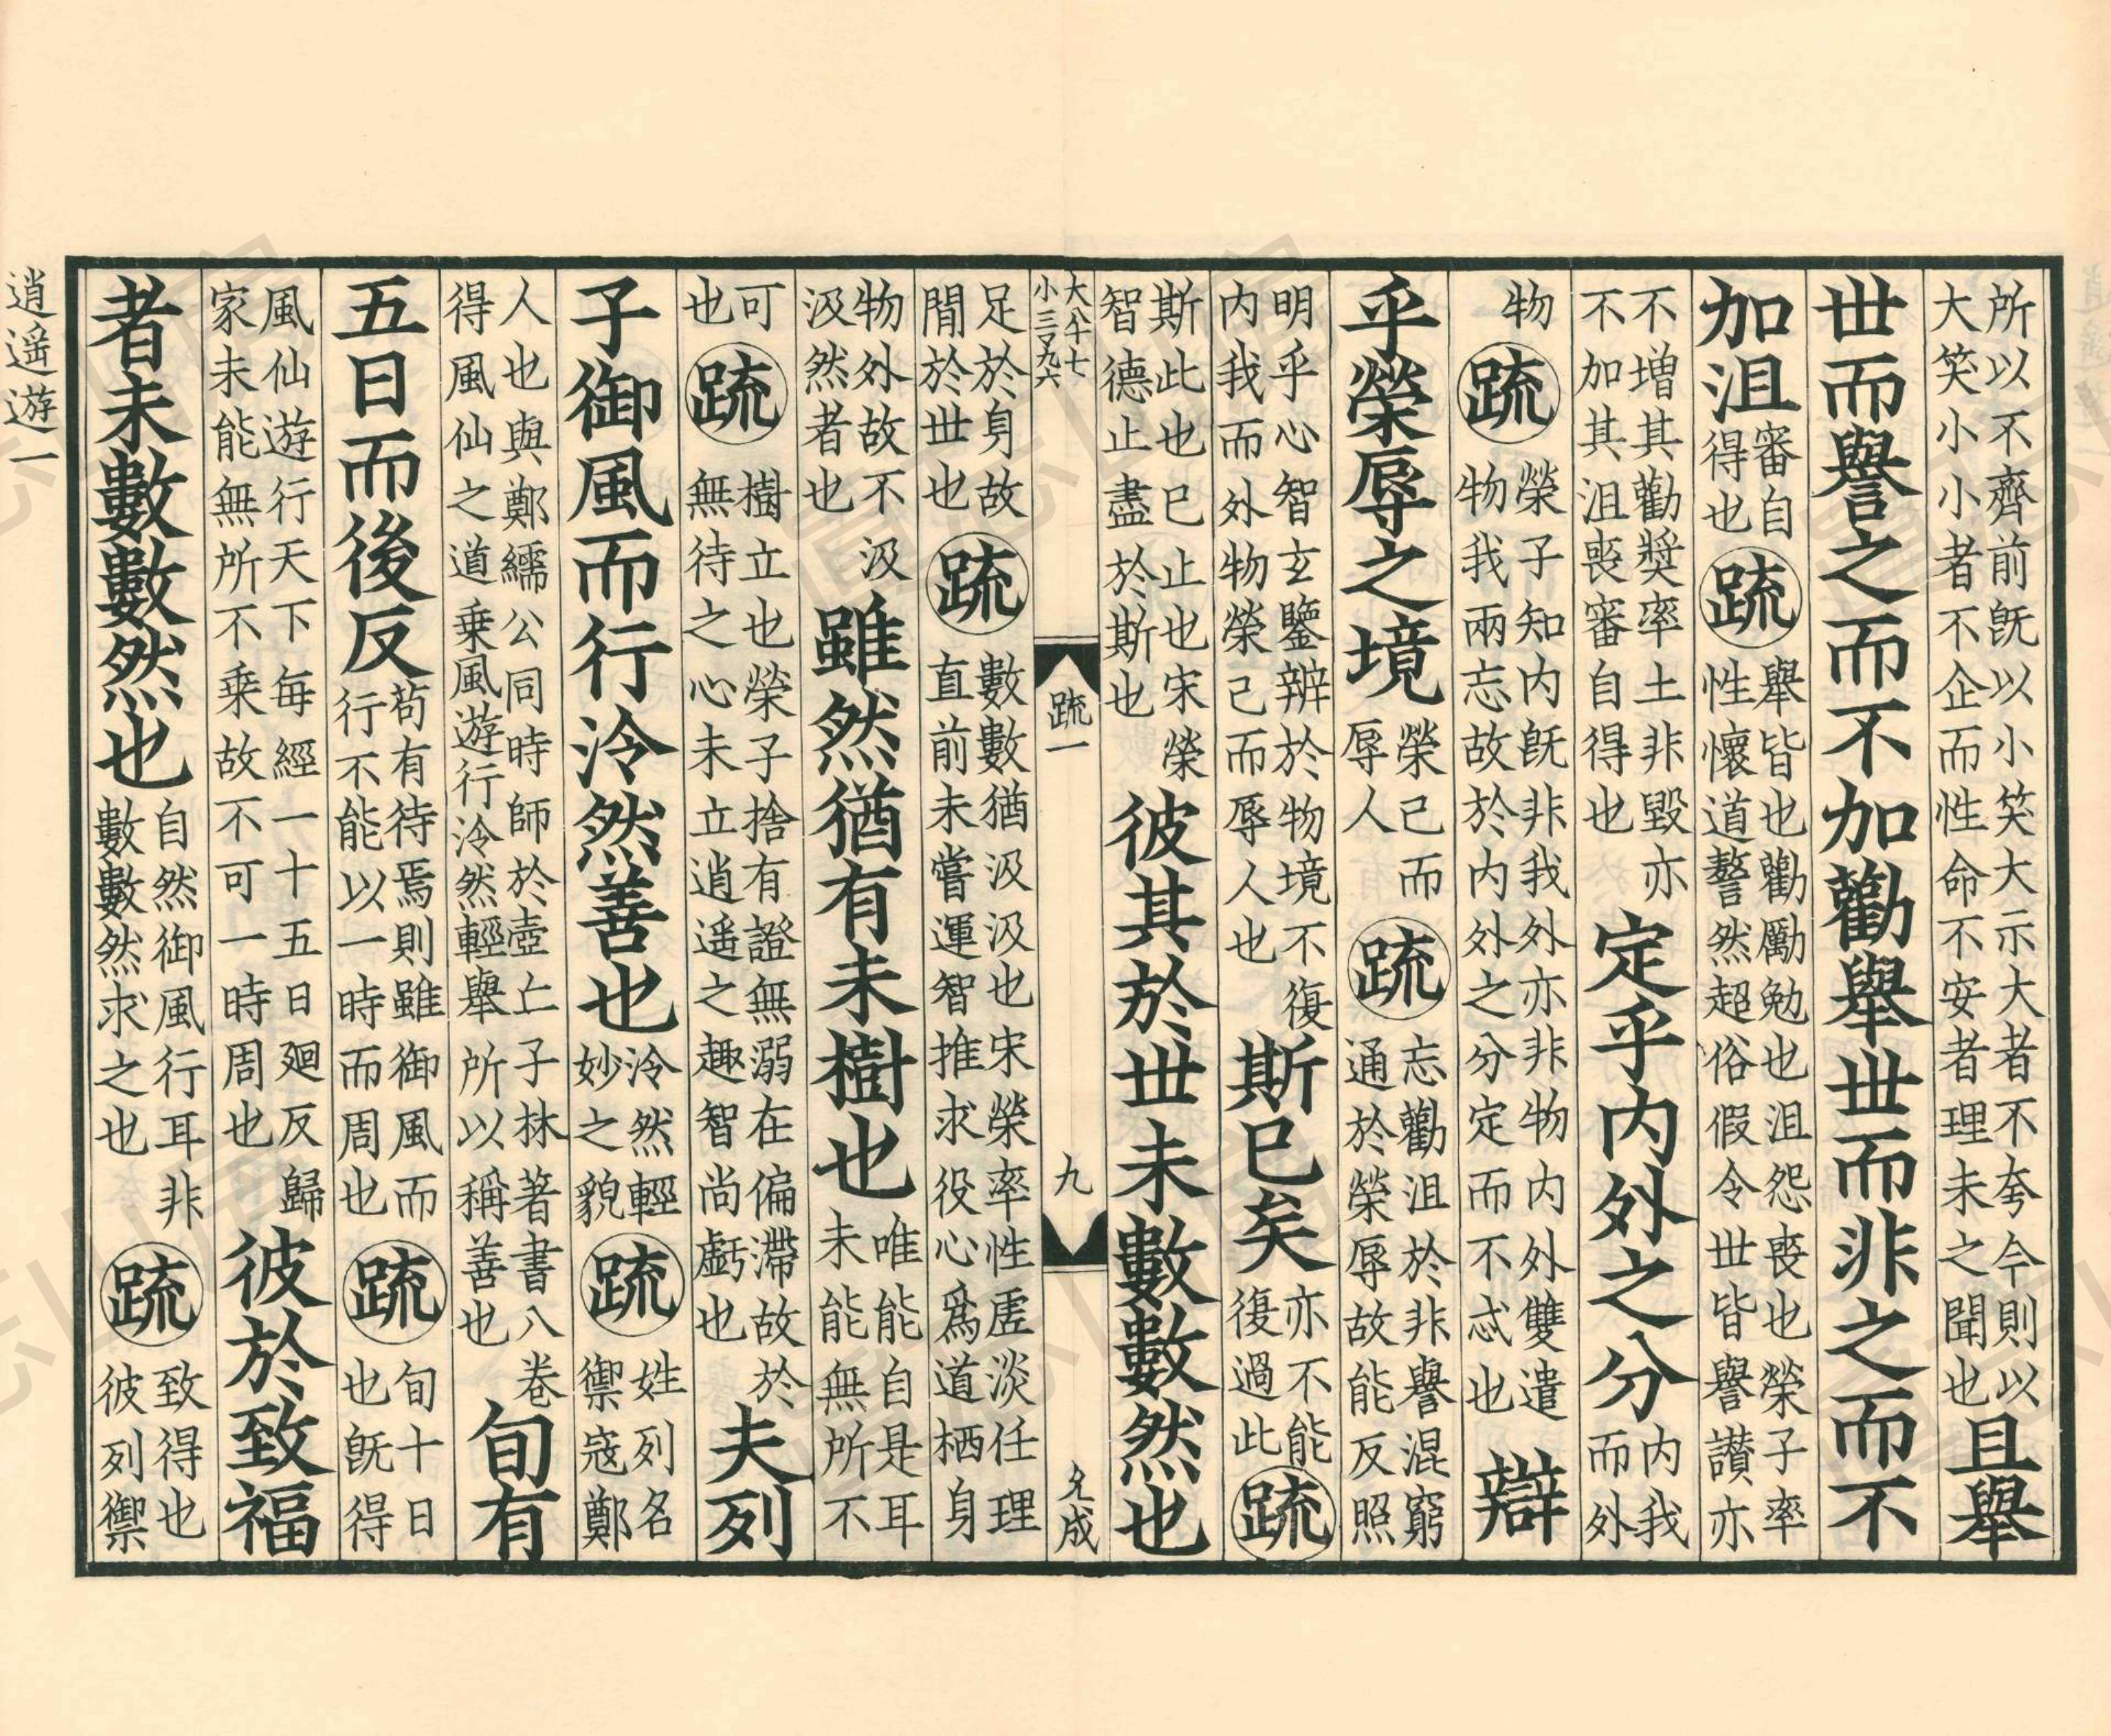 所以不齊前既以小笑大示大者不夸今則以大笑小小者不企而性命不安者理未之聞也且舉
世而譽之而不加勸舉世而非之而不
加沮審自得也疏舉皆也勸勵勉也沮怨喪也榮子率性懷道謷然超俗假令世皆譽讃亦
不増其勸奬率土非毀亦不加其沮喪審自得也定乎内外之分内我而外
物疏榮子知内既非我外亦非物内外雙遣物我兩忘故於内外之分定而不忒也辯
乎榮辱之境榮己而辱人疏忘勸沮於非譽混窮通於榮辱故能反照
明乎心智玄鑒辨於物境不復内我而外物榮己而辱人也斯已矣亦不能復過此疏
斯此也已止也宋榮智德止盡於斯也彼其於世未數數然也
大八十七
小三百九六
疏一
九
足於身故閒於世也疏數數猶汲汲也宋榮率性虛淡任理直前未嘗運智推求役心爲道栖身
物外故不汲汲然者也雖然猶有未樹也唯能自是耳未能無所不
可也疏樹立也榮子捨有證無溺在偏滯故於無待之心未立逍遥之趣智尚虧也夫列
子御風而行泠然善也泠然輕妙之貌疏姓列名禦寇鄭
人也與鄭繻公同時師於壺丘子林著書八卷得風仙之道乗風遊行泠然輕舉所以稱善也旬有
五日而後反苟有待焉則雖御風而行不能以一時而周也疏旬十日也既得
風仙遊行天下每經一十五日廻反歸家未能無所不乗故不可一時周也彼於致福
者未數數然也自然御風行耳非數數然求之也疏致得也彼列禦
逍遥遊一